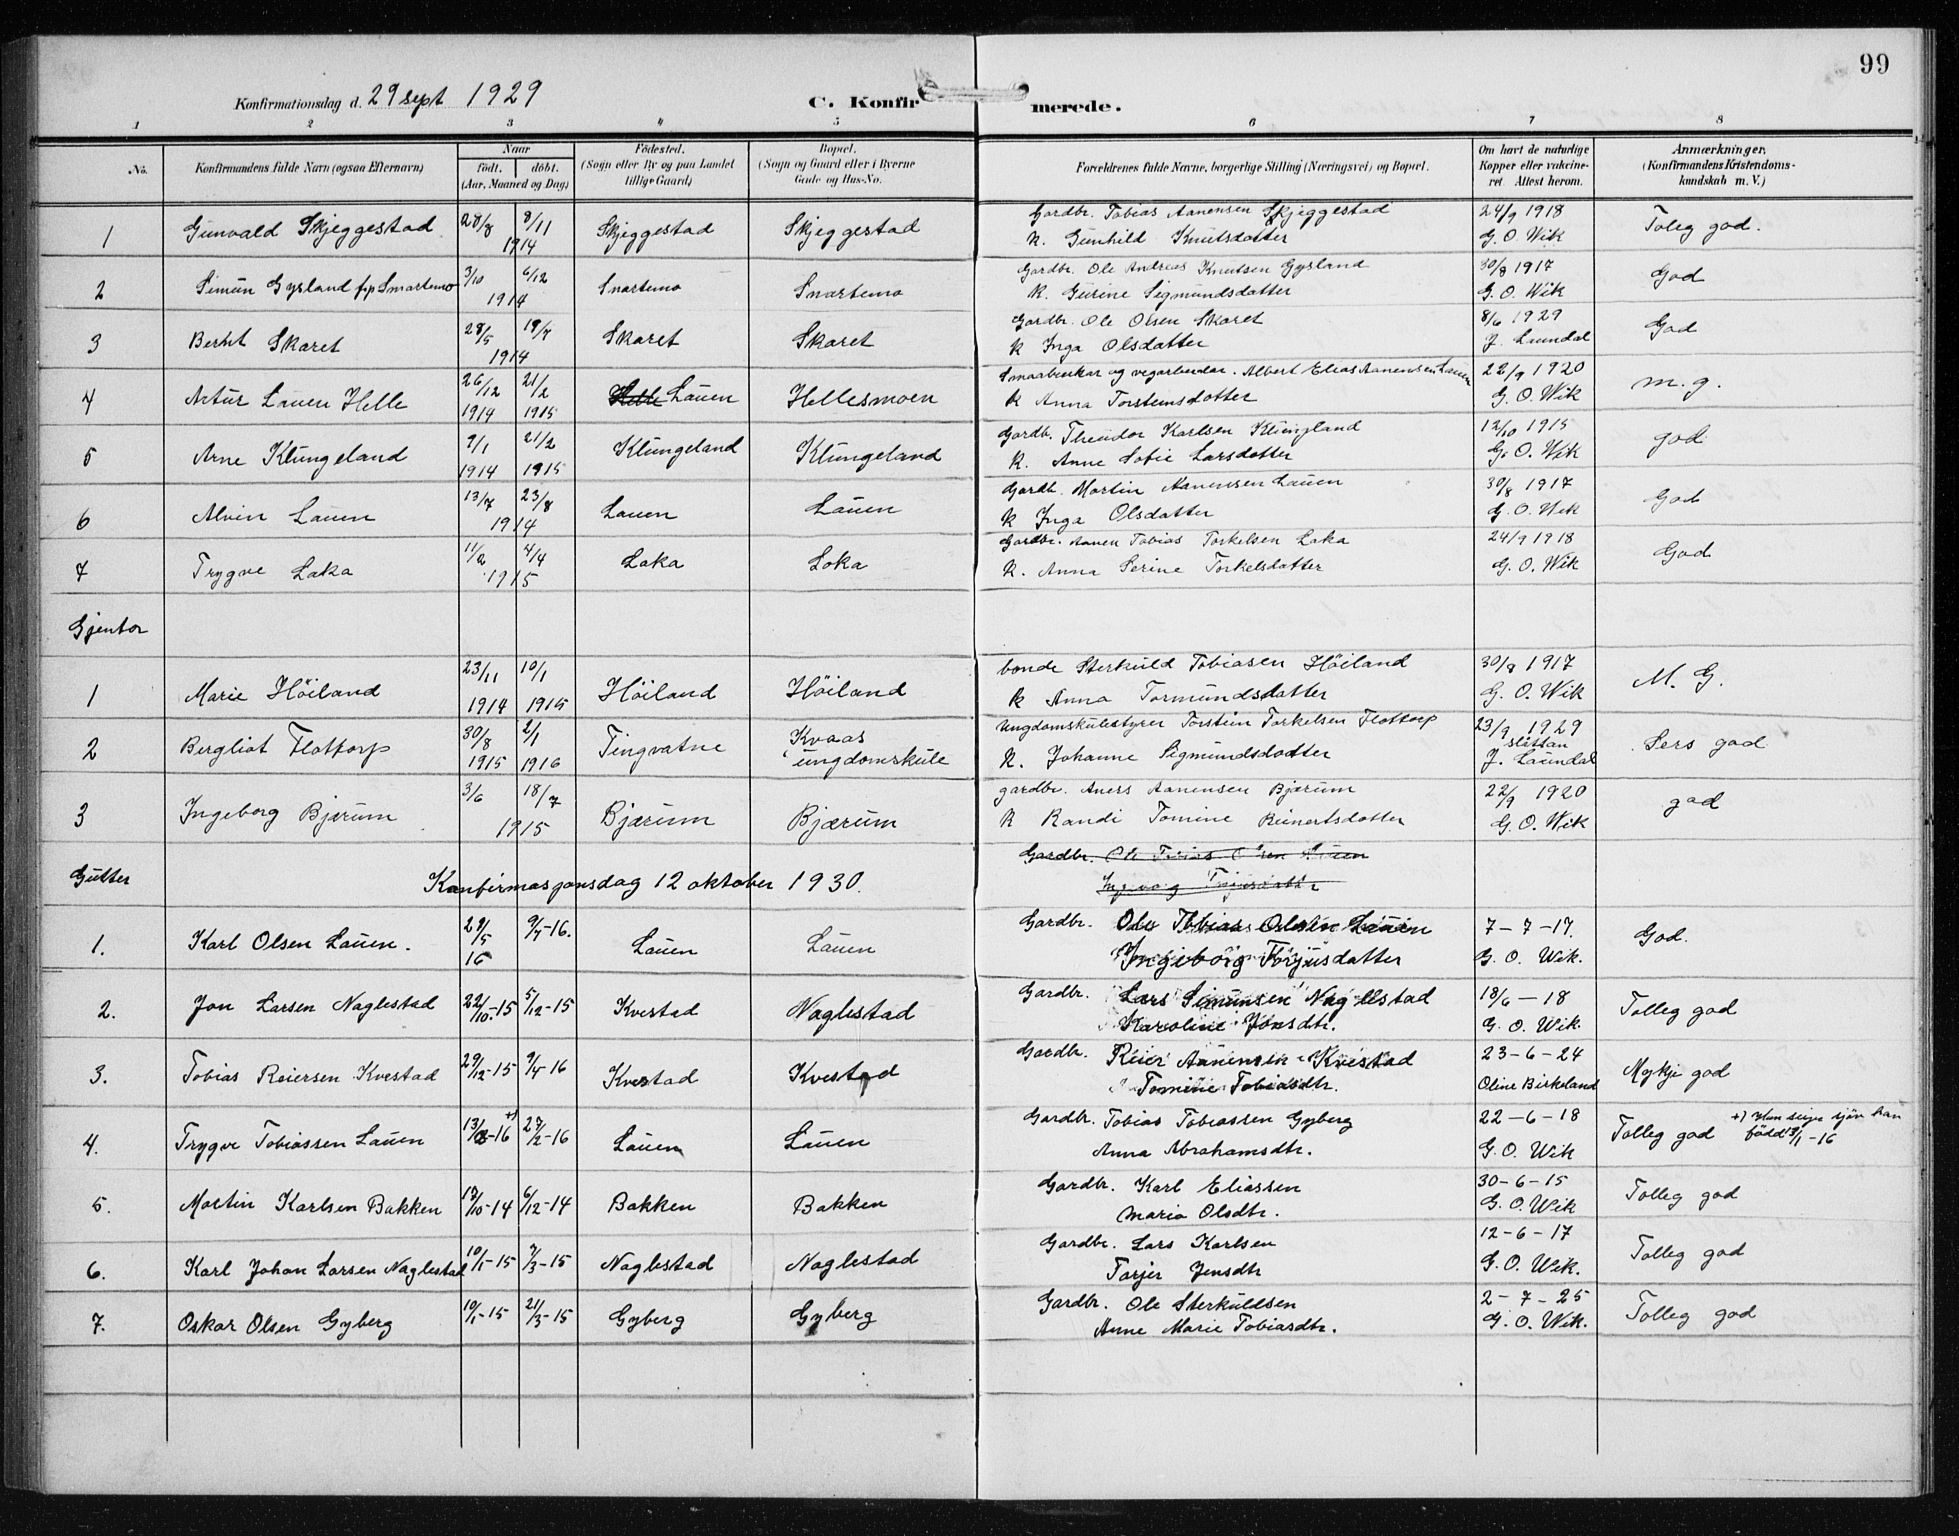 99
Konfirmationsdag d. 29 sept 1929 C. Konfirmerede.
1 2 3 4 5 6 7 8
No. Konfirmandens fulde Navn (ogsaa Efternavn) Naar født. døbt. (Aar, Maaned og Dag) Fødested. (Sogn eller By og paa Landet tillige Gaard) Bopæl. (Sogn og Gaard eller i Byerne Gade og Hus-No. Forældrenes fulde Navne, borgerlige Stilling (Næringsvei) og Bopæl. Om havt de naturlige Kopper eller vakcineret. Attest herom. Anmærkninger. (Konfirmandens Kristendomskundskab m. V.)
1 Gunvald Skjeggestad 28/8 8/11 1914 Skjeggestad Skjeggestad Gardbr. Tobias Aanensen Skjeggestad 24/9 1918 Toleg god.
K. Gunhild Knutsdotter G. O. Wik
2 Simun Gysland Snartemo 3/10 6/12 1914 Snartemo Snartemo Gardbr. Ole Andreas Knutsen Gysland 30/8 1917 God
K. Gurine Sigmundsdatter G. O. Wik
3 Bernt Skaret 28/5 19/7 1914 Skaret Skaret Gardbr. Ole Olsen Skaret 8/6 1929 God
K Inga Olsdatter J. Laundal
4 Artur Lauen Helle 26/12 1914 21/2 1915 Helle Lauen Hellesmoen Smaabrukar og vegarbeidar. Albert Elias Aanensen Lauen 22/9 1920 m. g.
K Anna Torsteinsdotter G. O. Wik
5 Arne Klungeland 9/1 1914 21/2 1915 Klungeland Klungeland Gardb. Theodor Karlsen Klungland 12/10 1915 god
K. Anne Sofie Larsdotter G. O. Wik
6 Alvin Lauen 13/7 23/8 1914 Lauen Lauen Gardb. Martin Aanensen Lauen 30/8 1917 God
K Inga Olsdatter G. O. Wik
7 Trygve Loka 11/2 4/4 1915 Loka Loka Gardbr. Aanen Tobias Torkelsen Loka 24/9 1918 God
K. Anna Serine Torkelsdatter G. O. Wik
Gjentor
1 Marie Höiland 23/11 1914 10/1 1915 Höiland Höiland bonde Sterkuld Tobiasen Höiland 30/8 1917 M. G.
K Anna Tormundsdatter G. O. Wik
2 Bergliot Flottorp 30/8 1915 2/1 1916 Tingvatne Kvaas ungdomskule Ungdomskulestyrer Torstein Torkelsen Flottorp 23/9 1929 Sers god
K. Johanne Sigmundsdotter J. Laundal
3 Ingeborg Bjærum 3/6 18/7 1915 Bjærum Bjærum gardbr. Aners Aanensen Bjærum 22/9 1920 god
K Randi Tomine Reinertsdotter G. O. Wik
Gardbr. Ole Tobias Olsen Lauen
Gutter Konfirmasjonsdag 12 oktober 1930. Ingeborg Torjusdatter
1. Karl Olsen Lauen. 29/5 16 9/7-16. Lauen Lauen Gardbr. Ole Tobias Olsen Lauen 7-7-17. God.
Ingeborg Torjusdatter G. O. Wik.
2. Jon Larsen Naglestad 22/10-15 5/12-15 Kvestad Naglestad Gardbr. Lars Simunsen Naglestad 18/6-18 Tolleg god
Karoline Jonsdtr. G. O. Wik.
3. Tobias Reiersen Kvestad 29/12-15 9/4-16 Kvestad Kvestad Gardbr. Reier Aanensen Kvestad 23-6-24 Mykje god
Tomine Tobiasdtr. Oline Birkeland
4. Trygve Tobiassen Lauen 13/2-16 +) 27/2-16 Lauen Lauen Gardbr. Tobias Tobiassen Gyberg 22-6-18 Tolleg god +) Han seger sjöv han född 13/1-16
Anna Abrahamsdtr. G. O. Wik
5. Martin Karlsen Bakken 19/10-14 6/12-14 Bakken Bakken Gardbr. Karl Eliassen 30-6-15 Tolleg god
Maria Olsdtr. G. O. Wik
6. Karl Johan Larsen Naglestad 10/1-15 7/3-15 Naglestad Naglestad Gardbr. Lars Karlsen 12-6-17 Tolleg god
Torjer Jensdtr G. O. Wik.
7. Oskar Olsen Gyberg 10/1-15 21/3-15 Gyberg Gyberg Gardbr. Ole Sterkuldsen 2-7-25 Tolleg god
Anne Marie Tobiasdtr. G. O. Wik.